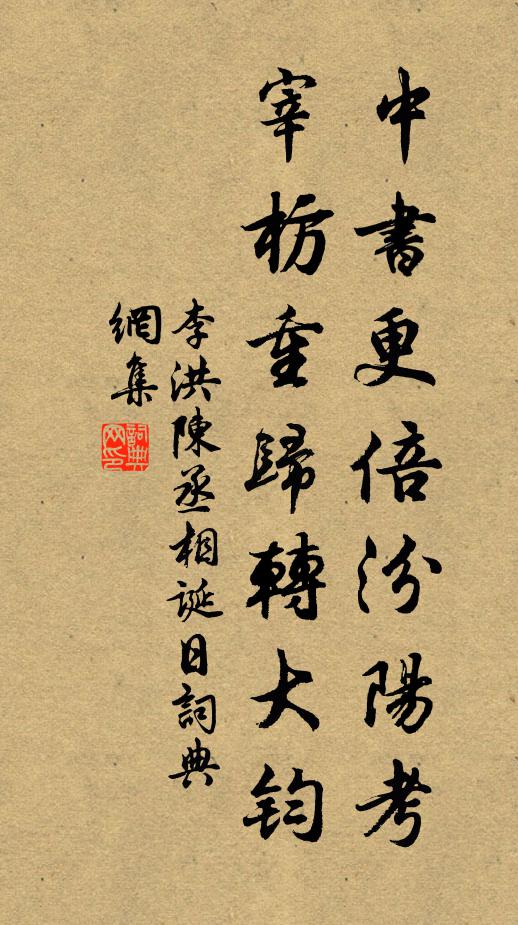 中書更倍汾陽考
宰枋重歸轉大鈞
李洪陳丞相誕日詞典
網集
詞典
网印